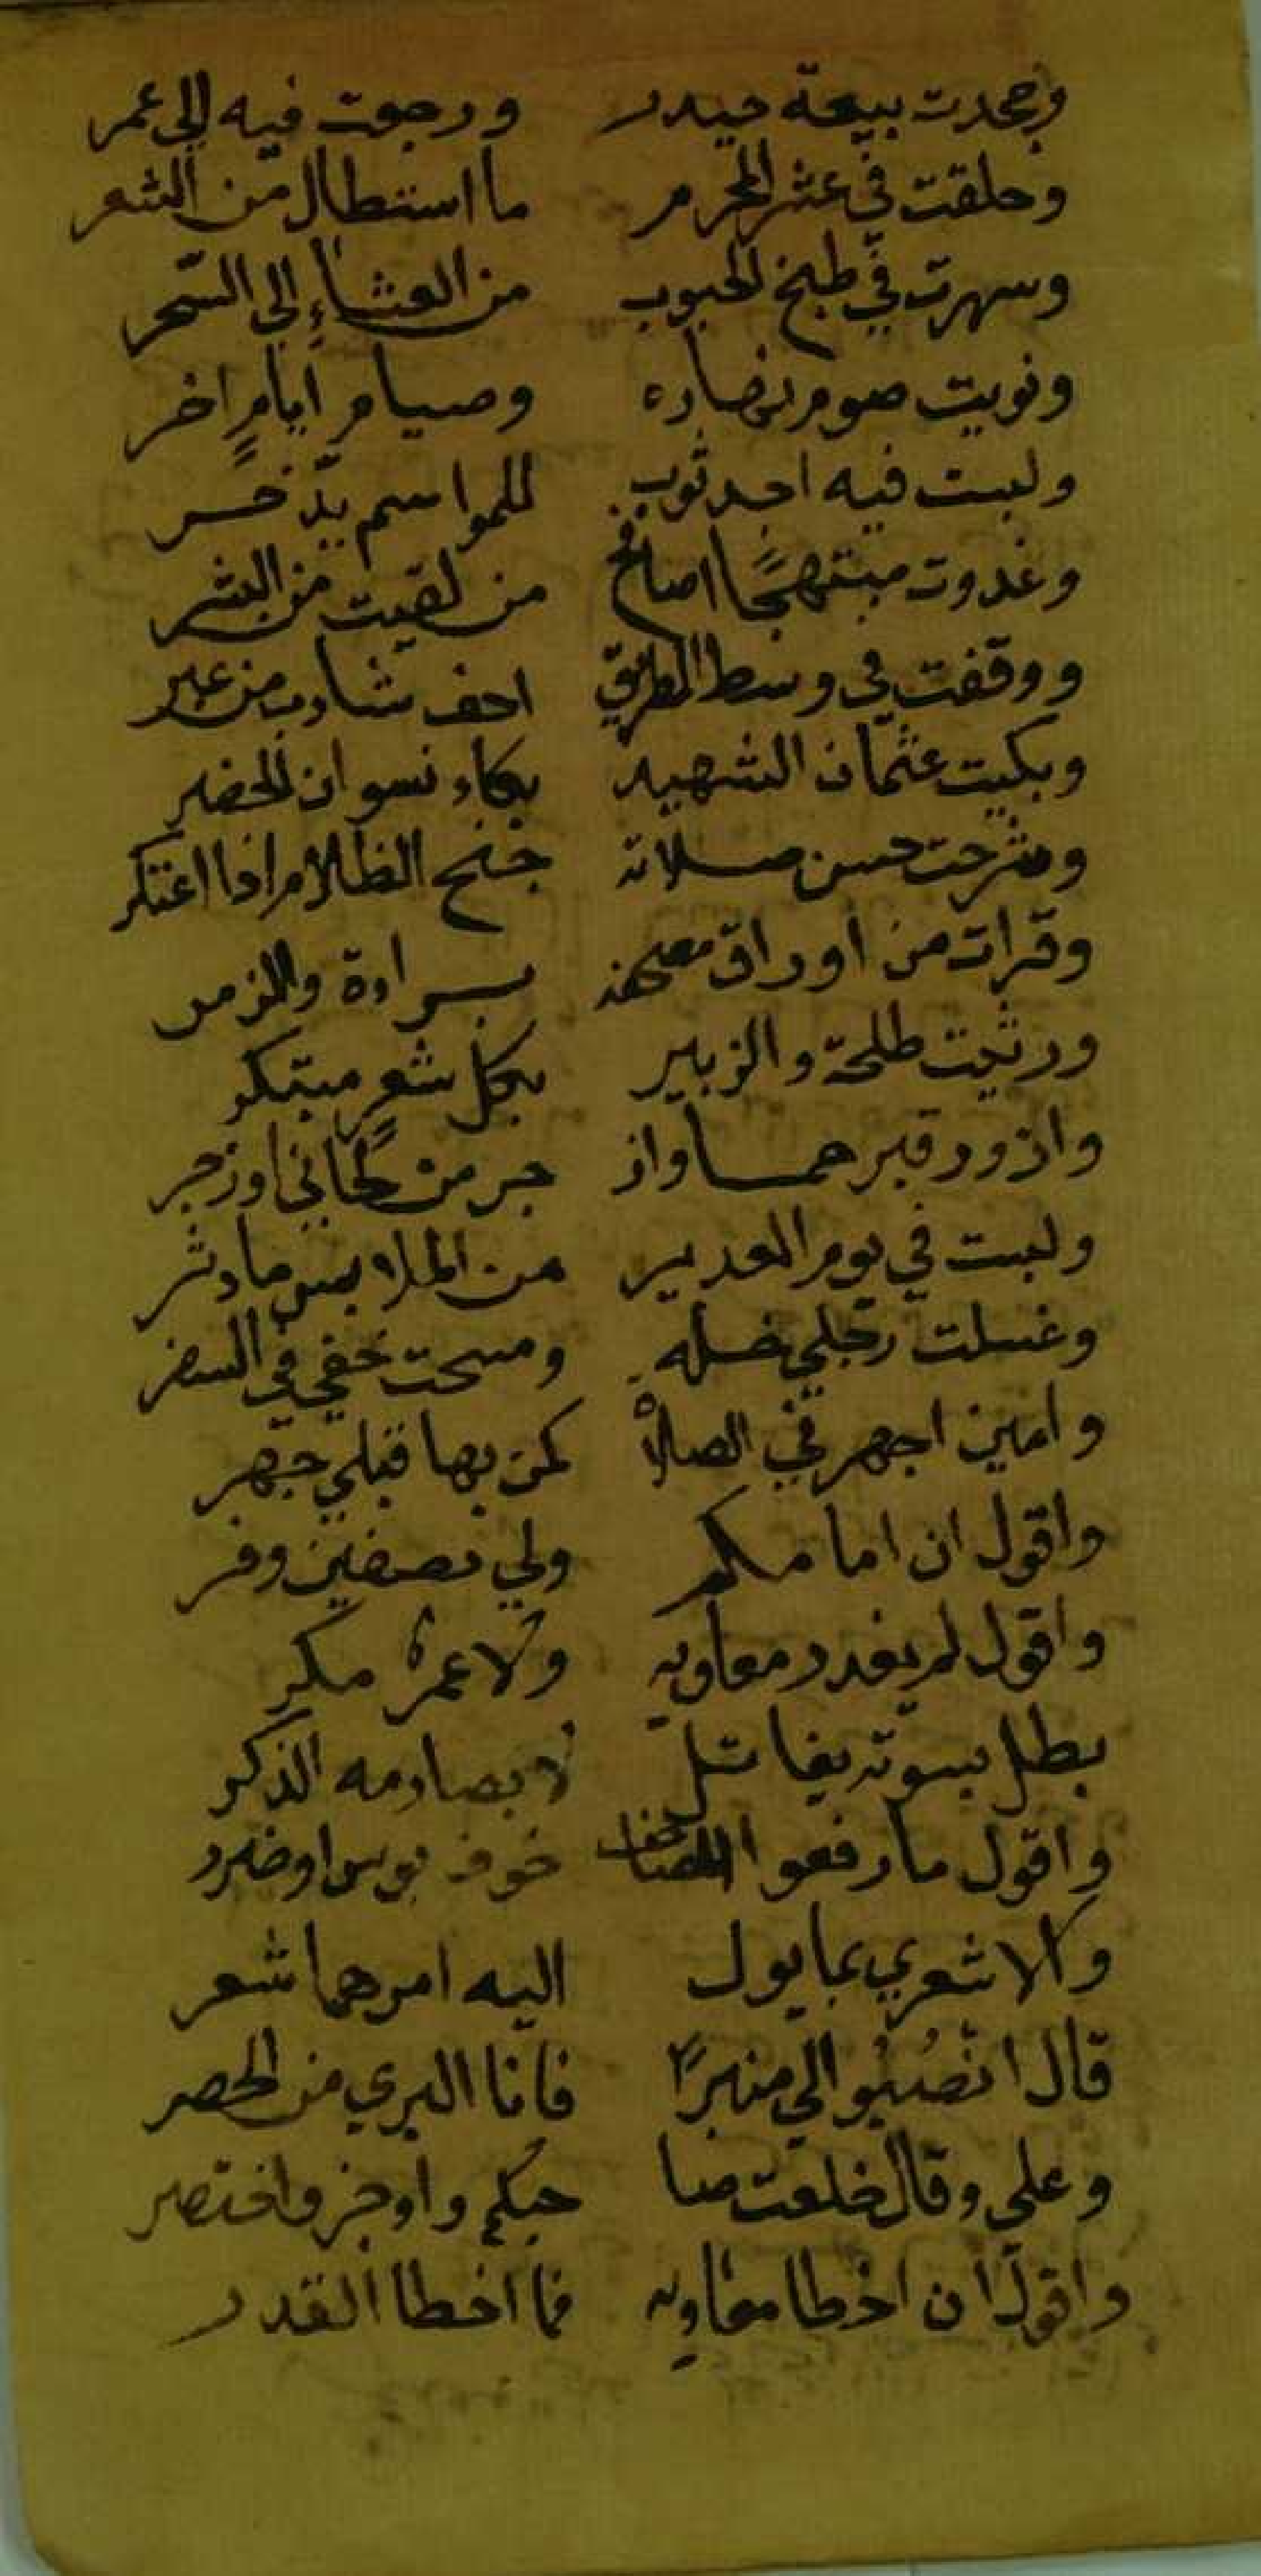 وجحدت بيعة حيدر ورجعت فيه الى عمر
وحلقت في عشر المحرم ما استطال من الشعر
وسهرت في طبخ الحبوب من العشاء الى السحر
ونويت صوم نهاره وصيام ايام اخر
ولبست فيه اجد ثوب للمواسم يدّخر
وغدوت مبتهجًا اصافح من لقيت من البشر
ووقفت في وسط الطريق احف شارب من عبر
وبكيت عثمان الشهيد بكاء نسوان الحضر
وشرحت حسن صلاته جنح الظلام اذا اعتكر
وقرات من اوراق مصحفه براءة والزمر
ورثيت طلحة والزبير بكل شعر مبتكر
وازور قبرهما واز جر من لحاني او زجر
ولبست في يوم الغدير من الملابس ما دثر
وغسلت رجلي ضلة ومسحت خفي في السفر
وامين اجهر في الصلاة كمن بها قبلي جهر
واقول ان امامكم ولي بصفين وفر
واقول لم يغدر معاويه ولا عمرو مكر
بطل بسوته يقاتل لا بصارمه الذكر
واقول ما رفعوا المصاحف خوف بوس او ضرر
والاشعري بما يول اليه امرهما شعر
قال انصُبُوا لي منبرًا فانا البري من الحصر
وعلى وقال خلعت صا حبكم واوجز واختصر
واقول ان اخطا معاويه فما اخطا القدر